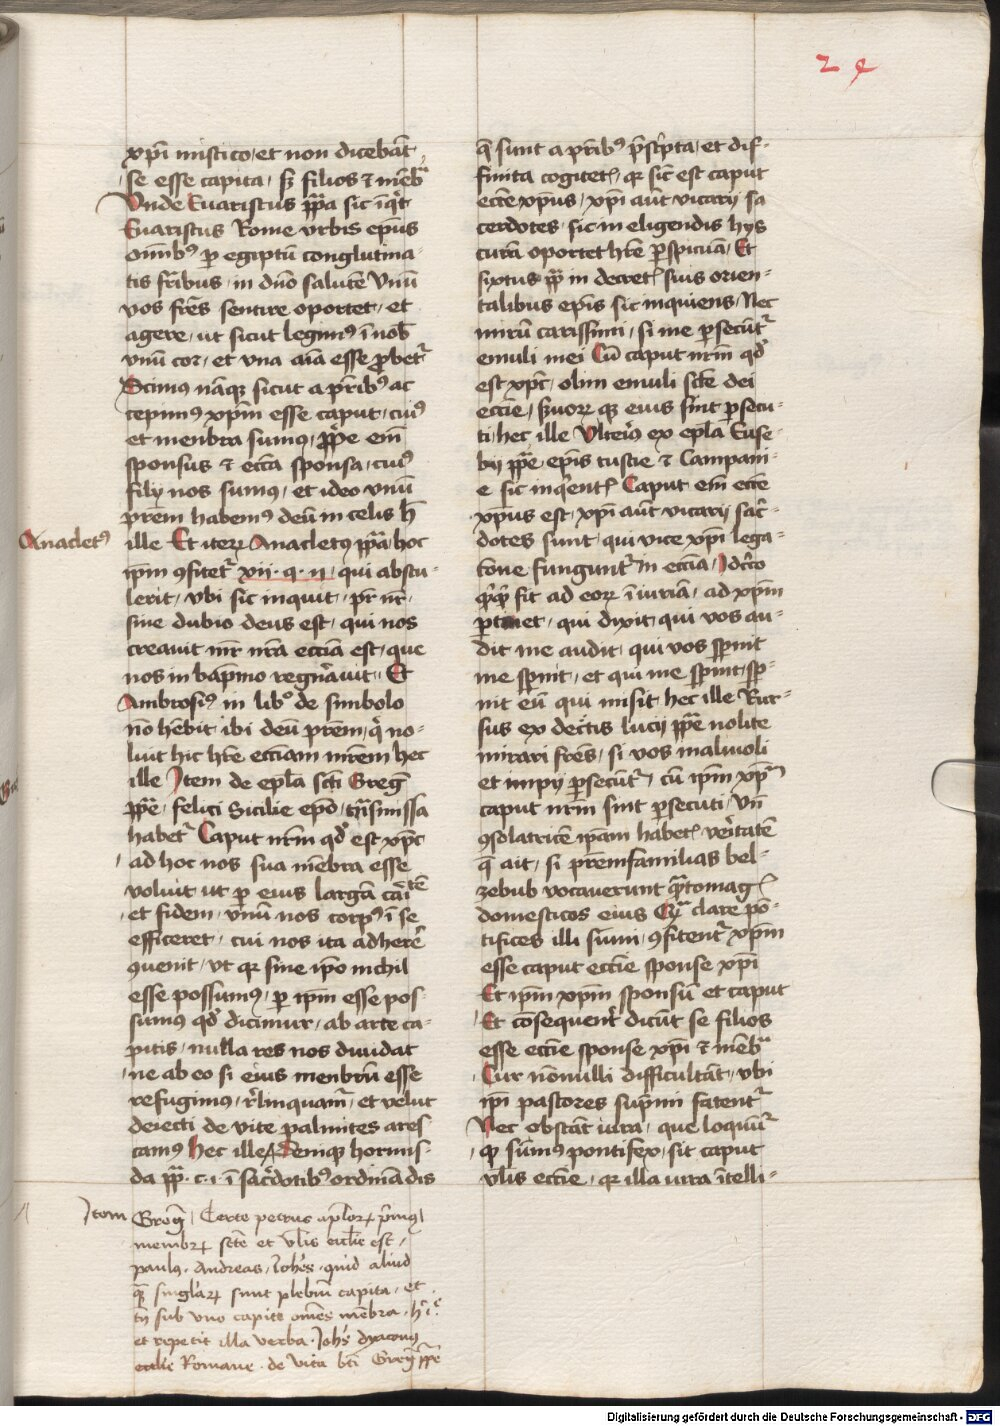 24
xpi mistico, et non dicebãt
se esse capita, sʒ filios ⁊ mẽbra
Unde Euaristus ppa sic iqt
Euaristus Rome urbis eps
omibꝰ p egiptũ conglutina-
tis fribus, in dño salutẽ Unũ
vos fres sentire oportet, et
agere, ut sicut legimꝰ ĩ nob
unũ cor, et una aĩa esse probet᷑
Scimus nãqʒ sicut a pribꝰ ac
cepimꝰ xpm esse caput, cuiꝰ
et menbra sumus, ppe em
sponsus ⁊ eccĩa sponsa, cuiꝰ
filij nos sumus, et ideo unũ
prem habemꝰ deũ in celis h
ille Et iterꝝ Anacletꝰ ppa hoc
Anacletꝰ
ipm ꝯfitet᷑ xii · q · ij, qui abstu-
lerit, ubi sic inquit, pr nr
sine dubio deus est, qui nos
creavit mr nra eccia est, que
nos in bapmo regñavit, Et
Ambrosiꝰ in libº de simbolo
nõ hẽbit ibi deũ prem, q no-
luit hic hre ecciam mrem hec
ille Item de epla sci Greg
ppe, felici Sicilie epo, trãsmissa
habet᷑ Caput nrm qd est xpc
ad hoc nos sua mẽbra esse
voluit ut p eius largã caritẽ
et fidem, unũ nos corpꝰ ĩ se
efficeret, cui nos ita adherẽ
ꝯuenit, ut qr sine ipo nichil
esse possumꝰ, p ipm esse pos-
sumꝰ qd dicimur, ab arte ca-
pitis, nulla res nos diuidat
ne ab eo si eius menbrũ esse
refugimus, rlinquamᷓ, et velut
deiecti de vite palmites ares
camꝰ hec ille, Deniqʒ hormis-
da ppa · c · i · ĩ sacdotibꝰ ordinãdis
q sunt a pribꝰ pscripta, et dif-
finita cogitet, qr sic est caput
eccie xpus, xpi aũt vicarij sa
cerdotes, sic in eligendis hijs
curã oportet hre pspicuã, Et
sixtus ppa in decret suis orien-
talibus epis sic inquiens, Nec
mirũ carissimi, si me psecũt᷑
emuli mei Cũ caput nrm qd
est xpc, olim emuli scte dei
eccie, suorꝝ qʒ eius sint psecu-
ti, hec ille Ulteriꝰ ex epla Euse-
bij ppe, epis tuscie ⁊ Campani-
e sic inqrent Caput em eccie
xpus est, xpi aũt vicarij sac-
dotes sunt, qui vice xpi lega-
tione fungunt᷑ in eccia, Idcirco
qcqd fit ad eorꝝ ĩiuriã, ad xpm
ptinet, qui dixit, qui vos au-
dit me audit, qui vos spnit
me spnit, et qui me spnit, sp-
nit eũ qui misit, hec ille Rur-
sus ex dectis lucij ppe nolite
mirari fres, si vos maliuoli
et impij psecũt᷑, cũ ipm xpm
caput nrm sint psecuti, Un
ꝯsolatricẽ ipam habet veritatẽ
q ait, si premfamilias bel-
zebub vocauerunt qᷓtomag
domesticos eius Eya clare põ-
tifices illi sũmi, ꝯfitent᷑ xpm
esse caput eccie sponse xpi
Et ipm xpm sponsũ et caput
Et cõsequent dicũt se filios
esse eccie sponse xpi ⁊ mẽbra
Cur nõnulli difficultãt, ubi
ipi pastores supmi fatent᷑
Nec obstãt iura, que loquũt᷑
qʒ sũmus pontifex, sit caput
ulis eccie, qr illa iura ĩtelli-
Item Greg, Certe petrus aplorꝝ primus,
membrꝝ scte et ulis ecclie est,
paulus, Andreas, Iohes, quid aliud
qᷓ singlarꝝ sunt plebium capita, et
tn sub uno capite omes membra, h i
et repetit illa verba · Iohes dyaconus
ecclie Romane · de vita bti Greg ppe
Digitalisierung gefördert durch die Deutsche Forschungsgemeinschaft - DFG